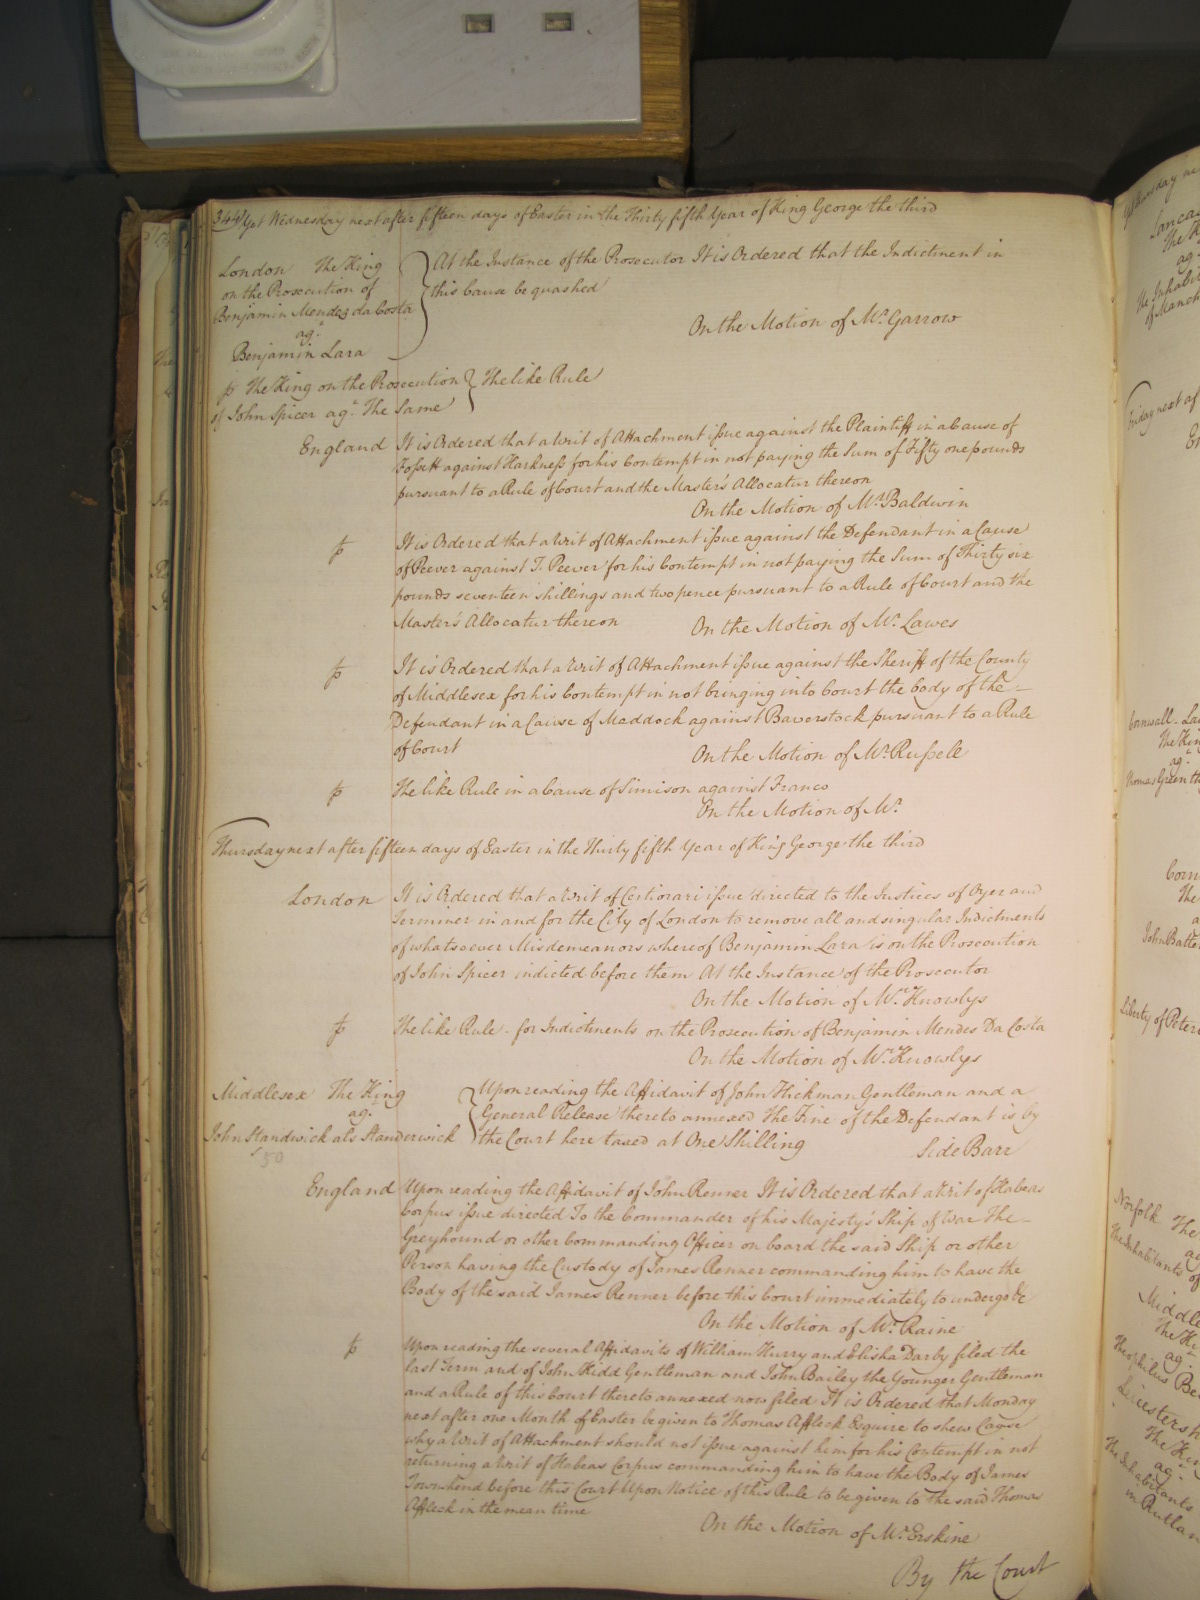 344 Yet Wednesday next after fifteen days of Easter in the Thirty fifth Year of King George the third
London The King
on the Prosecution of
Benjamin Mendez da Costa
agt
Benjamin Lara
At the Instance of the Prosecutor It is Ordered that the Indictment in
this Cause be quashed
On the Motion of Mr. Garrow
The King on the Prosecution
of John Spicer agt. The Same
The like Rule
England It is Ordered that a Writ of Attachment issue against the Plaintiff in a Cause of
Fossett against Harkness for his Contempt in not paying the Sum of Fifty one pounds
pursuant to a Rule of Court and the Master's Allocatur thereon
On the Motion of Mr. Baldwin
It is Ordered that a Writ of Attachment issue against the Defendant in a Cause
of Peever against T. Peever for his Contempt in not paying the Sum of Thirty six
pounds seventeen shillings and two pence pursuant to a Rule of Court and the
Master's Allocatur thereon On the Motion of Mr. Lawes
It is Ordered that a Writ of Attachment issue against the Sheriff of the County
of Middlesex for his Contempt in not bringing into Court the body of the
Defendant in a Cause of Maddock against Baverstock pursuant to a Rule
of Court On the Motion of Mr. Russell
The like Rule in a Cause of Simison against Franco
On the Motion of Mr.
Thursday next after fifteen days of Easter in the Thirty fifth Year of King George the third
London It is Ordered that a Writ of Certiorari issue directed to the Justices of Oyer and
Terminer in and for the City of London to remove all and singular Indictments
of whatsoever Misdemeanors whereof Benjamin Lara is on the Prosecution
of John Spicer indicted before them At the Instance of the Prosecutor
On the Motion of Mr. Knowlys
The like Rule - for Indictments on the Prosecution of Benjamin Mendes Da Costa
On the Motion of Mr. Knowlys
Middlesex The King
ag.
John Standwick als Standerwick
50
Upon reading the Affidavit of John Hickman Gentleman and a
General Release thereto annexed The Fine of the Defendant is by
the Court here taxed at One Shilling
Side Barr
England Upon reading the Affidavit of John Renner It is Ordered that a Writ of Habeas
Corpus issue directed To the Commander of his Majesty's Ship of War The
Greyhound or other Commanding Officer on board the said Ship or other
Person having the Custody of James Renner commanding him to have the
Body of the said James Renner before this Court immediately to undergo &c
On the Motion of Mr. Raine
Upon reading the several Affidavits of William Hurry and Elisha Darby filed the
last Term and of John Kidd Gentleman and John Bailey the Younger Gentleman
and a Rule of this Court thereto annexed now filed It is Ordered that Monday
next after one Month of Easter be given to Thomas Affleck Esquire to shew Cause
why a Writ of Attachment should not issue against him for his Contempt in not
returning a Writ of Habeas Corpus commanding him to have the Body of James
Townshend before this Court Upon Notice of this Rule to be given to the said Thomas
Affleck in the mean time
On the Motion of Mr. Erskine
By the Court
Friday next af
Cornwall
Thomas Green
Liberty of Peter
Norfolk The
The Inhabitants of
The Inhabitants